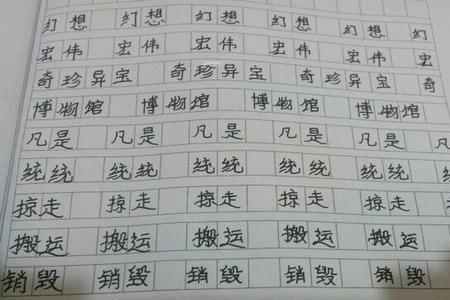 幻想 幻想 幻想 幻想 幻想 幻想 幻
宏伟 宏伟 宏伟 宏伟 宏伟 宏伟
奇珍异宝 奇珍异宝 奇珍异宝 奇
博物馆 博物馆 博物馆 博物馆
凡是 凡是 凡是 凡是 凡是
统统 统统 统统 统统 统统 统
掠走 掠走 掠走 掠走 掠走 掠
搬运 搬运 搬运 搬运 搬运
销毁 销毁 销毁 销毁 销毁